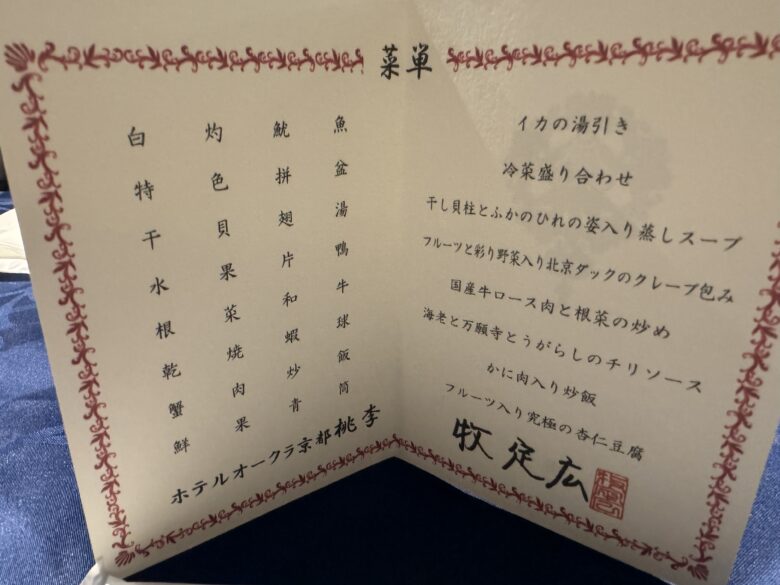 菜単
白灼魷魚
特色拼盆
干貝翅湯
水果片鴨
根菜和牛
乾焼蝦球
蟹肉炒飯
鮮果青筒
ホテルオークラ京都桃李
イカの湯引き
冷菜盛り合わせ
干し貝柱とふかのひれの姿入り蒸しスープ
フルーツと彩り野菜入り北京ダックのクレープ包み
国産牛ロース肉と根菜の炒め
海老と万願寺とうがらしのチリソース
かに肉入り炒飯
フルーツ入り究極の杏仁豆腐
牧定広